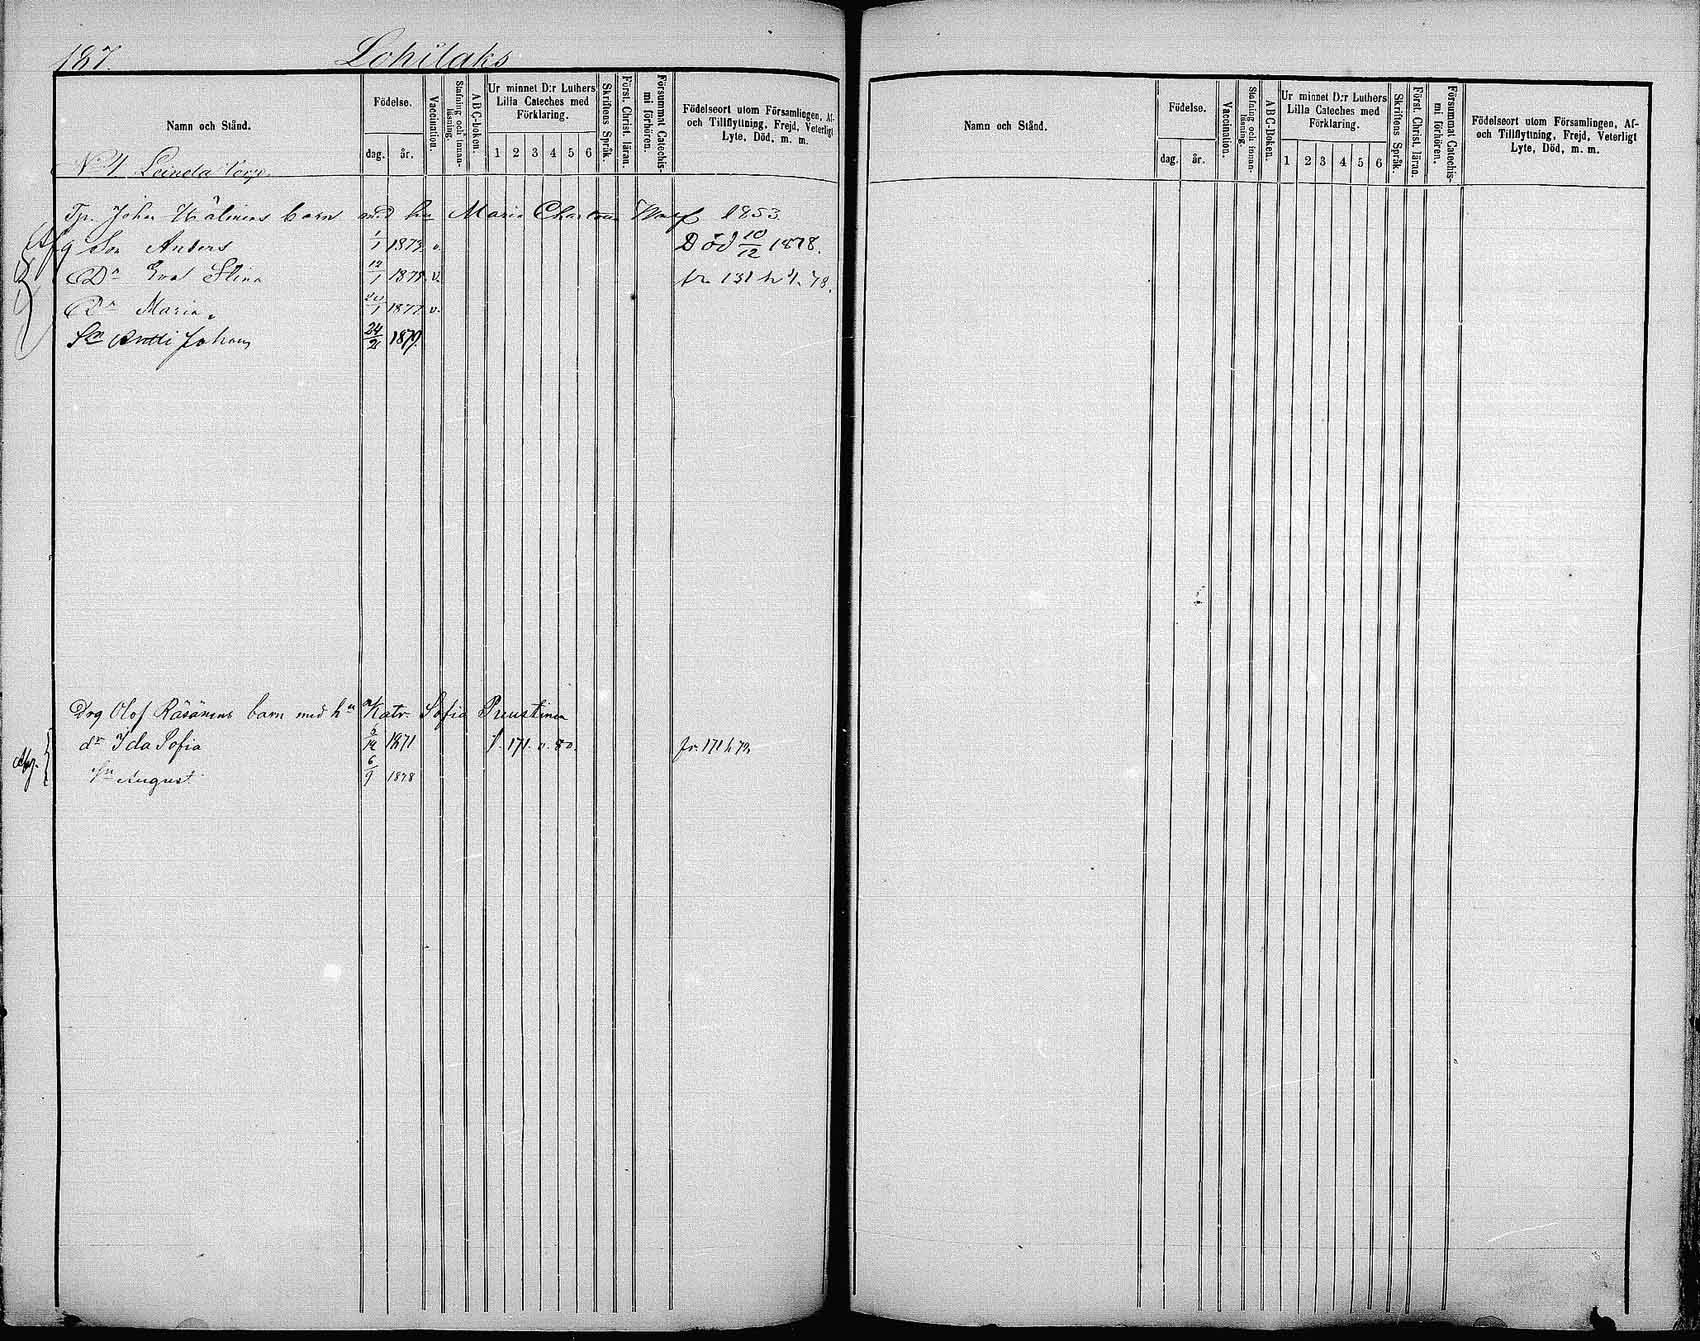 187. Lohilaks
Namn och Stånd.
Födelse.
dag. år.
Vaccination.
Stafning och innanläsning.
ABC-boken.
Ur minnet D:r Luthers Lilla Cateches med Förklaring.
1 2 3 4 5 6
Skriftens Språk.
Först. Christ. läran.
Försummat Catechismi förhören.
Födelseort utom Församlingen, Af- och Tillflyttning, Frejd, Veterligt Lyte, Död, m. m.
N 4 Torp.
Tp. Johan barn med hu Maria 1853.
Son Anders 1/1 1873 v. Död 10/12 1878.
Dr Eva Stina 12/1 1875 v. fr. 131 h 4. 78.
Dr Maria 1877 v.
Sn Antti Johan 24/2 1879.
Drg Olof Räsänens barn med hu Katr. Sofia Preustinen
dr Ida Sofia 6/12 1871 f. 171. v. 80. fr. 171 h 73
Afg. sn August 6/9 1878
Namn och Stånd.
Födelse.
dag. år.
Vaccination.
Stafning och innanläsning.
ABC-Boken.
Ur minnet D:r Luthers Lilla Cateches med Förklaring.
1 2 3 4 5 6
Skriftens Språk.
Först. Christ. läran.
Försummat Catechismi förhören.
Födelseort utom Församlingen, Af- och Tillflyttning, Frejd, Veterligt Lyte, Död, m. m.